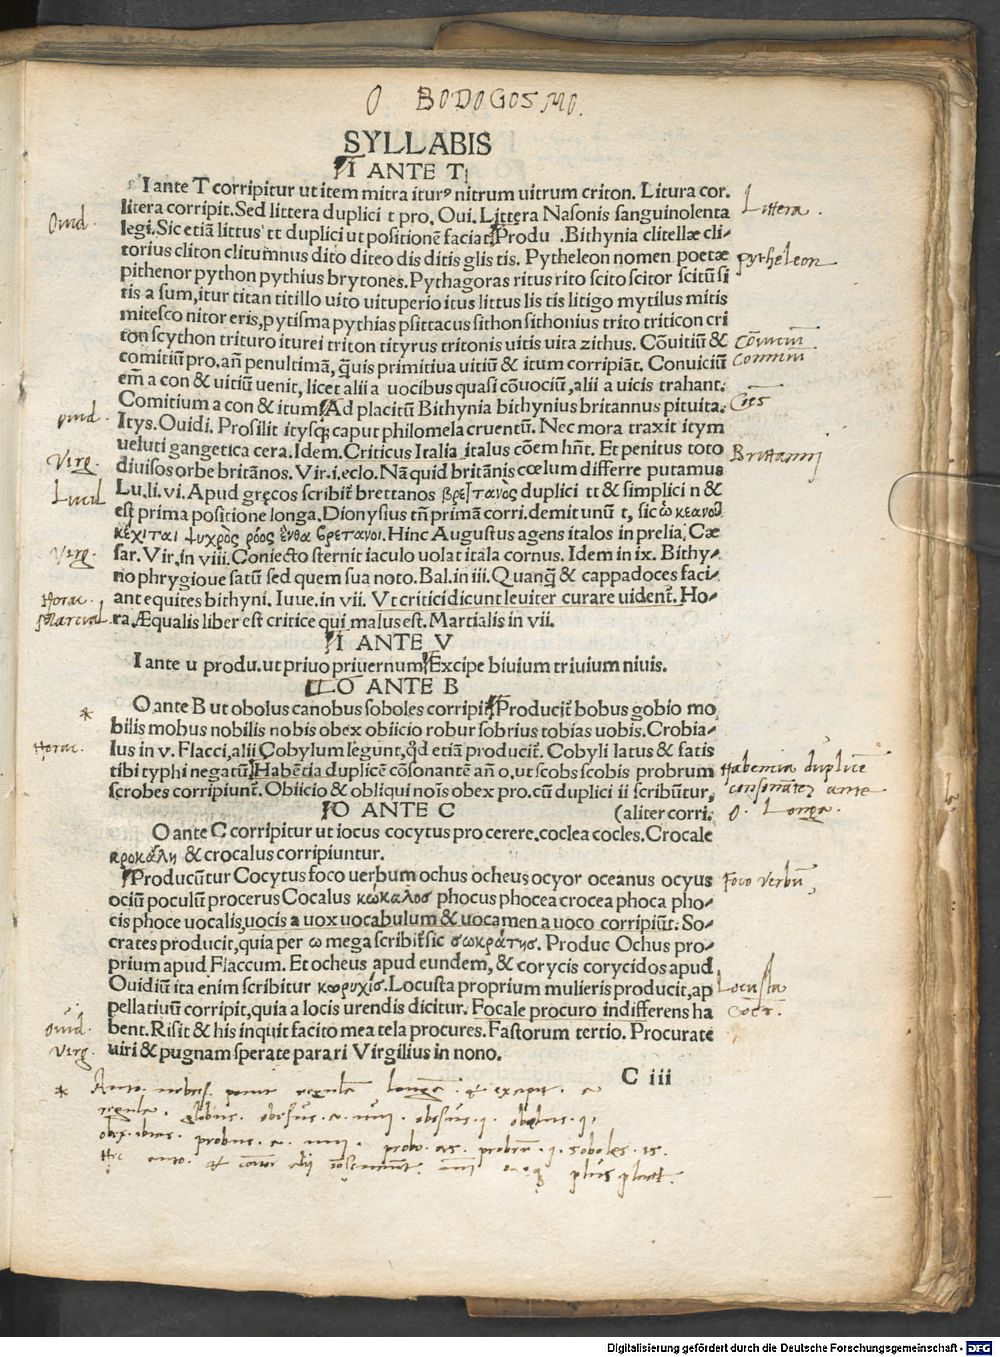 O BODOGOSMO.
SYLLABIS
I ANTE T
I ante T corripitur ut item mitra iturꝰ nitrum uitrum criton. Litura cor.
litera corripit. Sed littera duplici t pro. Oui. Littera Nasonis sanguinolenta
legi. Sic etiā littus tt duplici ut positionē faciat Produ . Bithynia clitellæ cli-
torius cliton clitumnus dito diteo dis ditis glis tis. Pytheleon nomen poetæ
pithenor python pythius brytones. Pythagoras ritus rito scito scitor scitū si
tis a sum, itur titan titillo uito uituperio itus littus lis tis litigo mytilus mitis
mitesco nitor eris, pytisma pythias psittacus sithon sithonius trito triticon cri
ton scython trituro iturei triton tityrus tritonis uitis uita zithus. Cōuitiū &
comitiū pro. añ penultimā, q̃uis primitiua uitiū & itum corripiāt. Conuiciū
em̄ a con & uitiū uenit, licet alii a uocibus quasi cōuociū, alii a uicis trahant.
Comitium a con & itum Ad placitū Bithynia bithynius britannus pituita.
Itys. Ouidi. Prosilit itysq; caput philomela cruentū. Nec mora traxit itym
ueluti gangetica cera. Idem. Criticus Italia italus cōem hñt. Et penitus toto
diuisos orbe britānos. Vir. i. eclo. Nā quid britānis cœlum differre putamus
Lu. li. vi. Apud gręcos scribit̄ brettanos βρεττανὸς duplici tt & simplici n &
est prima positione longa. Dionysius tñ primā corri. demit unū t, sic ὠκεανοῦ
κέχιται ψυχρὸς ρόος ἔνθα βρετανοι. Hinc Augustus agens italos in prelia. Cæ
sar. Vir. in viii. Coniecto sternit iaculo uolat itala cornus. Idem in ix. Bithy-
no phrygioue satū sed quem sua noto. Bal. in iii. Quanq̃ & cappadoces faci-
ant equites bithyni. Iuue. in vii. Vt critici dicunt leuiter curare uident̄. Ho-
ra. Æqualis liber est critice qui malus est. Martialis in vii.
I ANTE V
I ante u produ. ut priuo priuernum Excipe biuium triuium niuis.
O ANTE B
O ante B ut obolus canobus soboles corripit̄ Producit̄ bobus gobio mo
bilis mobus nobilis nobis obex obiicio robur sobrius tobias uobis. Crobia-
lus in v. Flacci, alii Cobylum legunt, q̇d etiā producit̄. Cobyli latus & fatis
tibi typhi negatū Habētia duplicē cōsonantē añ o. ut scobs scobis probrum
scrobes corripiunt̄. Obiicio & obliqui nois obex pro. cū duplici ii scribūtur,
O ANTE C (aliter corri.
O ante C corripitur ut iocus cocytus pro cerere. coclea cocles. Crocale
κροκάλη & crocalus corripiuntur.
Producūtur Cocytus foco uerbum ochus ocheus ocyor oceanus ocyus
ociū poculū procerus Cocalus κώκαλοσ phocus phocea crocea phoca pho-
cis phoce uocalis, uocis a uox uocabulum & uocamen a uoco corripiūt. So-
crates producit, quia per ω mega scribit̄ sic σωκράτησ. Produc Ochus pro-
prium apud Flaccum. Et ocheus apud eundem, & corycis corycidos apud
Ouidiū ita enim scribitur κωρυχίσ. Locusta proprium mulieris producit, ap
pellatiuū corripit, quia a locis urendis dicitur. Focale procuro indifferens ha
bent. Risit & his inquit facito mea tela procures. Fastorum tertio. Procurate
uiri & pugnam sperate parari Virgilius in nono.
C iii
Ouid.
Ouid.
Virg.
Lucil
Virg.
Horac.
Marcial
*
Horac.
Ouid.
Virg.
Littera.
pytheleon
Cōuitiū
Comitiū
Brittannij
Habentia duplicē
consonātez ante
O. Longa.
Foco verbū
Locusta
*
regula. globus.
probus.
probo. as. soboles. is.
plus placet.
Digitalisierung gefördert durch die Deutsche Forschungsgemeinschaft - DFG